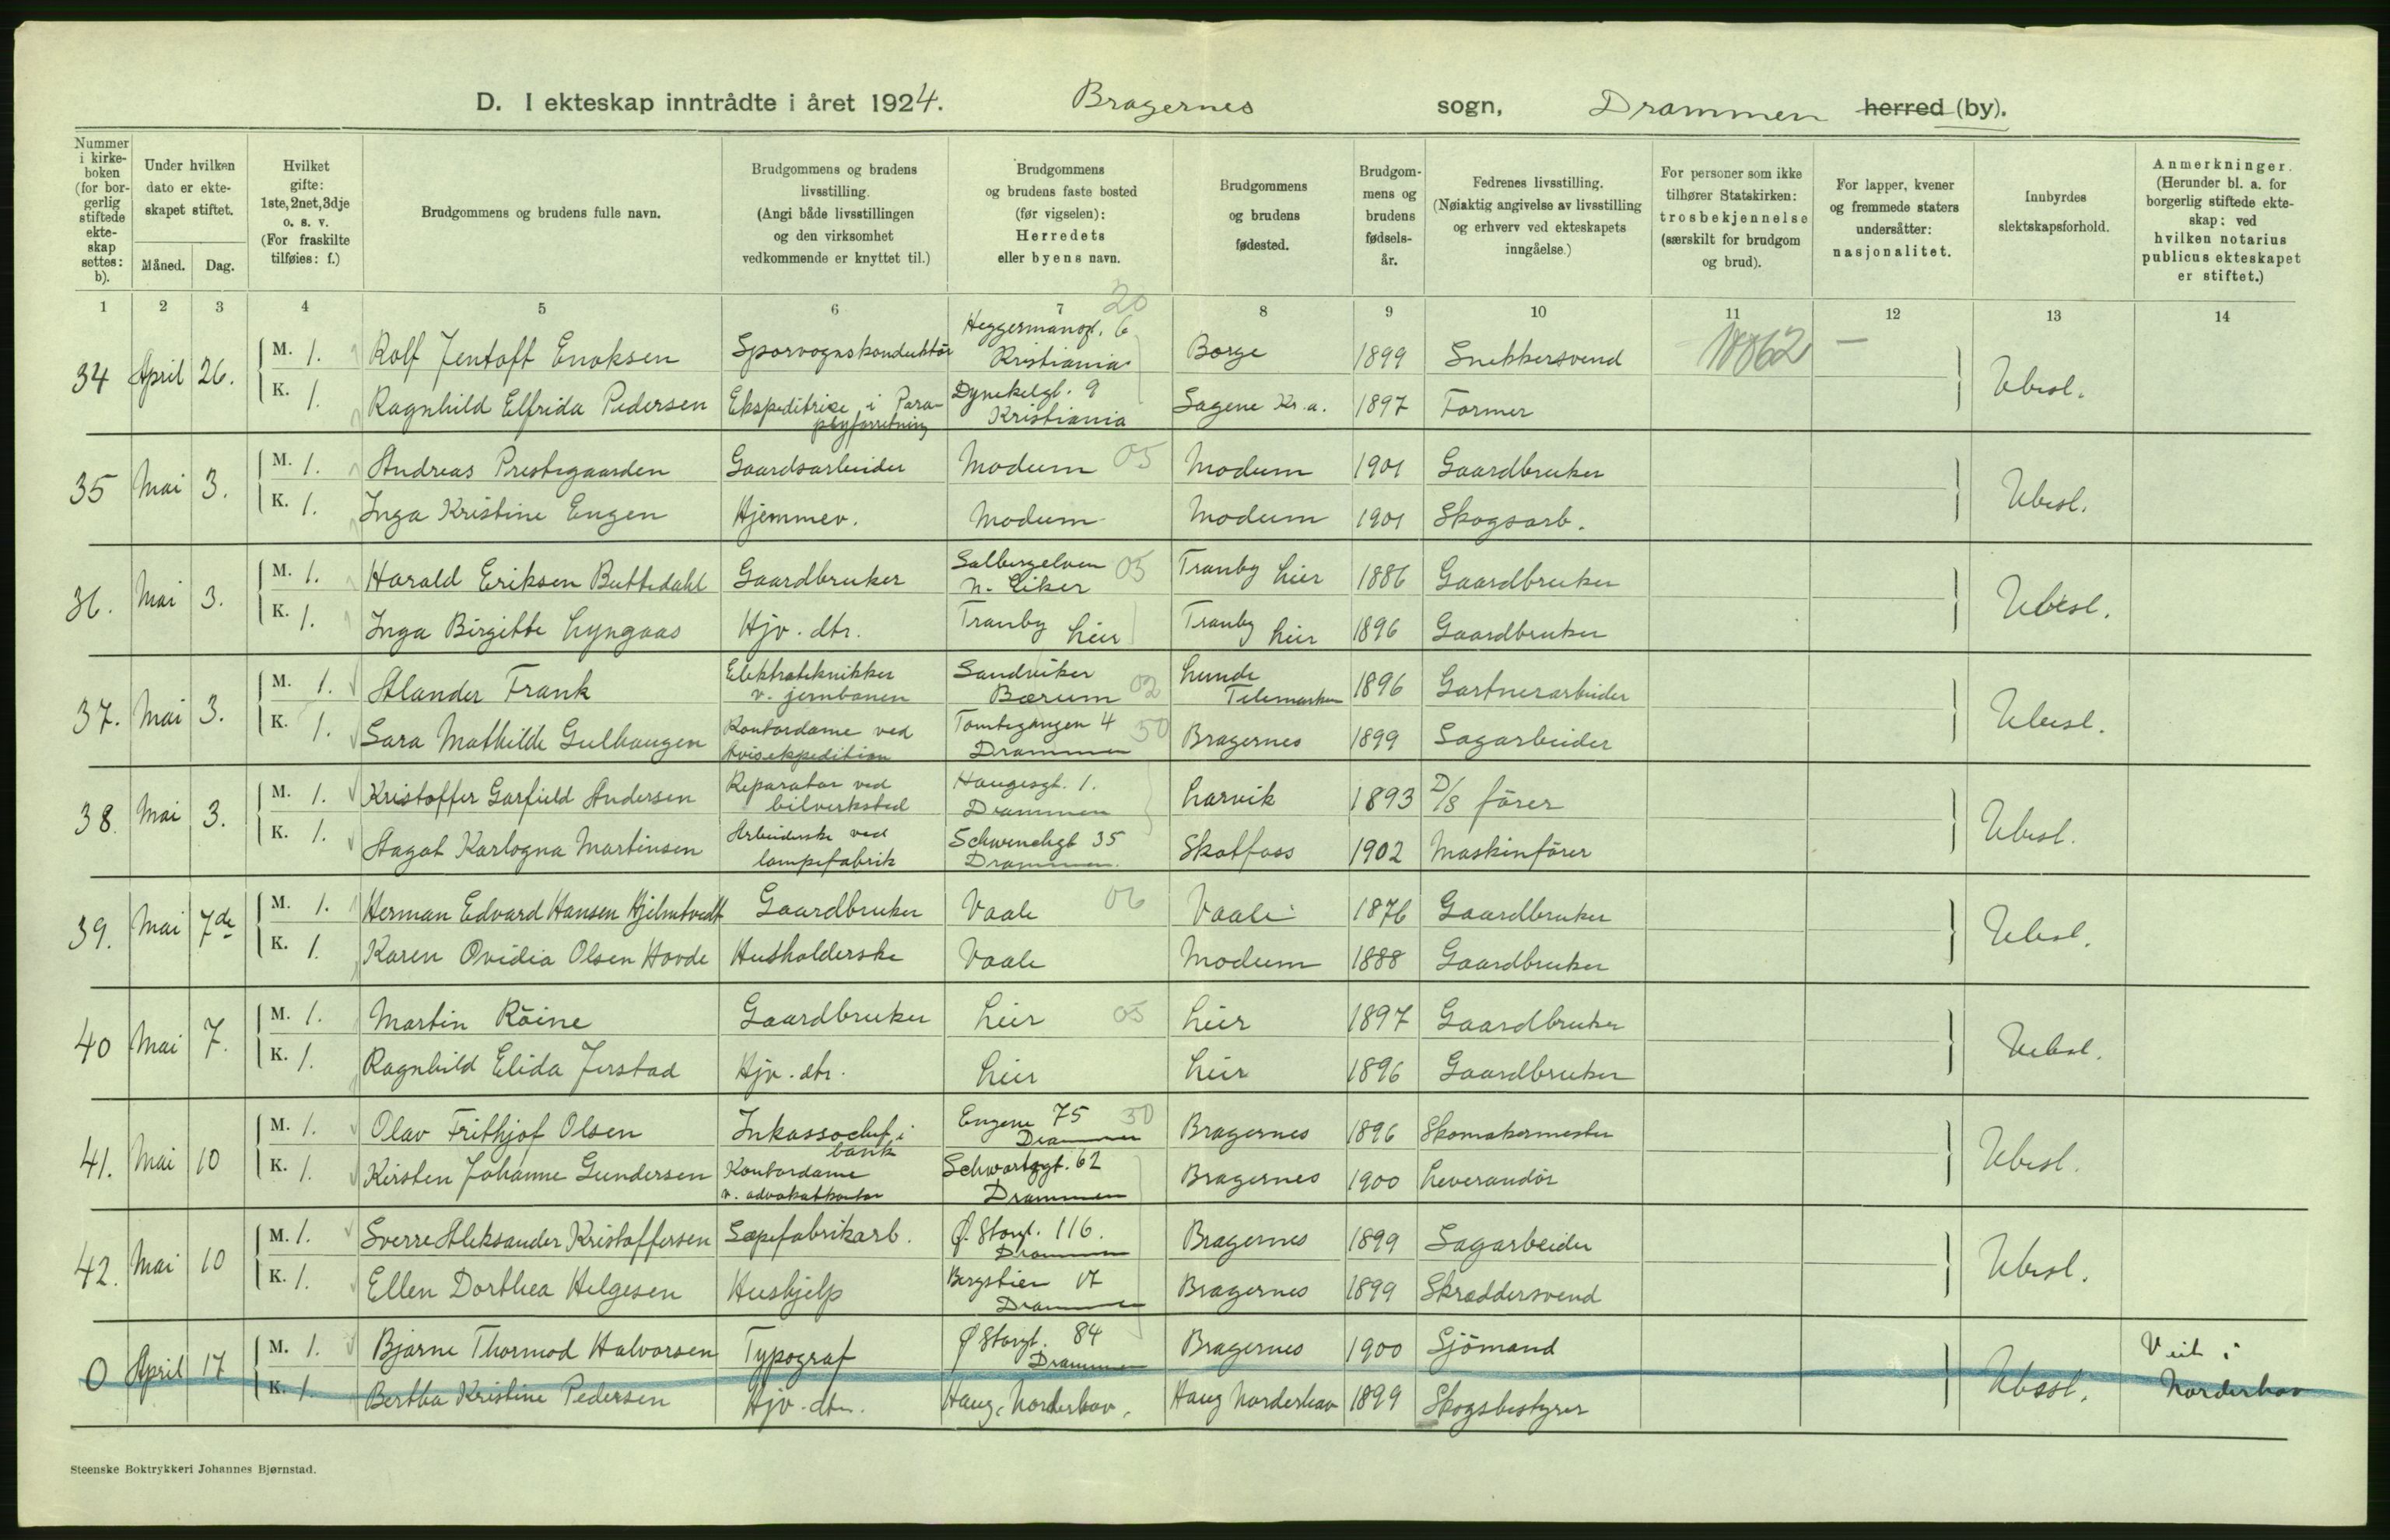 D. I ekteskap inntrådte i året 1924. Bragernes sogn, Drammen herred (by).
Nummer i kirkeboken (for borgerlig stiftede ekteskap settes: b).
Under hvilken dato er ekteskapet stiftet.
Måned. Dag.
Hvilket gifte: 1ste, 2net, 3dje o. s. v. (For fraskilte tilføies: f.)
Brudgommens og brudens fulle navn.
Brudgommens og brudens livsstilling. (Angi både livsstillingen og den virksomhet vedkommende er knyttet til.)
Brudgommens og brudens faste bosted (før vigselen): Herredets eller byens navn.
Brudgommens og brudens fødested.
Brudgommens og brudens fødselsår.
Fedrenes livsstilling. (Nøiaktig angivelse av livsstilling og erhverv ved ekteskapets inngåelse.)
For personer som ikke tilhører Statskirken: trosbekjennelse (særskilt for brudgom og brud).
For lapper, kvener og fremmede staters undersåtter: nasjonalitet.
Innbyrdes slektskapsforhold.
Anmerkninger. (Herunder bl. a. for borgerlig stiftede ekteskap: ved hvilken notarius publicus ekteskapet er stiftet.)
1 2 3 4 5 6 7 8 9 10 11 12 13 14
34 April 26. M. 1. Rolf Jentoft Enoksen Sporvognskonduktör Heggermansgt. 6 Kristiania 20 Borge 1899 Snekkersvend 10062 —
K. 1. Ragnhild Elfrida Pedersen Ekspeditrise i Paraplyforretning Dynekelgt. 9 Kristiania Sagene Kr.a. 1897 Former Ubesl.
35 Mai 3. M. 1. Andreas Prestegaarden Gaardsarbeider Modum 05 Modum 1901 Gaardbruker
K. 1. Inga Kristine Engen Hjemmev. Modum Modum 1901 Skogsarb. Ubesl.
36. Mai 3. M. 1. Harald Eriksen Buttedahl Gaardbruker Solbergelven N. Eiker 05 Tranby Lier 1886 Gaardbruker
K. 1. Inga Birgitte Lyngaas Hjv. dtr. Tranby Lier Tranby Lier 1896 Gaardbruker Ubesl.
37. Mai 3. M. 1. Alander Frank Elektroteknikker v. jernbanen Sandviken Bærum 02 Lunde Telemarken 1896 Gartnerarbeider
K. 1. Sara Mathilde Gulhaugen Kontordame ved Avisekspedition Tomtegangen 4 Drammen 30 Bragernes 1899 Sagarbeider Ubesl.
38. Mai 3. M. 1. Kristoffer Garfield Andersen Reparatør ved bilverksted Haugesgt. 1. Drammen Larvik 1893 D/S förer
K. 1. Aagot Karlogna Martinsen Arbeiderske ved lampefabrik Schwenckgt 35 Drammen. Skotfoss 1902 Maskinförer Ubesl.
39. Mai 7de M. 1. Herman Edvard Hansen Hjelmtvedt Gaardbruker Vaale 06 Vaale 1876 Gaardbruker
K. 1. Karen Ovidia Olsen Hovde Husholderske Vaale Modum 1888 Gaardbruker Ubesl.
40 Mai 7. M. 1. Martin Röine Gaardbruker Lier 05 Lier 1897 Gaardbruker
K. 1. Ragnhild Elida Jerstad Hjv. dtr. Lier Lier 1896 Gaardbruker Ubesl.
41. Mai 10 M. 1. Olav Frithjof Olsen Inkassochef i bank Engene 75 Drammen 30 Bragernes 1896 Skomakermester
K. 1. Kirsten Johanne Gundersen Kontordame v. advokatkontor Schwartzgt. 62 Drammen Bragernes 1900 Leverandör Ubesl.
42. Mai 10 M. 1. Sverre Aleksander Kristoffersen Sæpefabrikarb. Ø. Storgt. 116. Drammen Bragernes 1899 Sagarbeider
K. 1. Ellen Dorthea Helgesen Hushjelp Bergstien 17 Drammen Bragernes 1899 Skræddersvend Ubesl.
0 April 17 M. 1. Bjarne Thormod Halvorsen Typograf Ø Storgt. 84 Drammen Bragernes 1900 Sjömand
K. 1. Bertha Kristine Pedersen Hjv. dtr. Haug, Norderhov. Haug Norderhov 1899 Skogsbestyrer Ubesl. Viet i Norderhov
Steenske Boktrykkeri Johannes Bjørnstad.